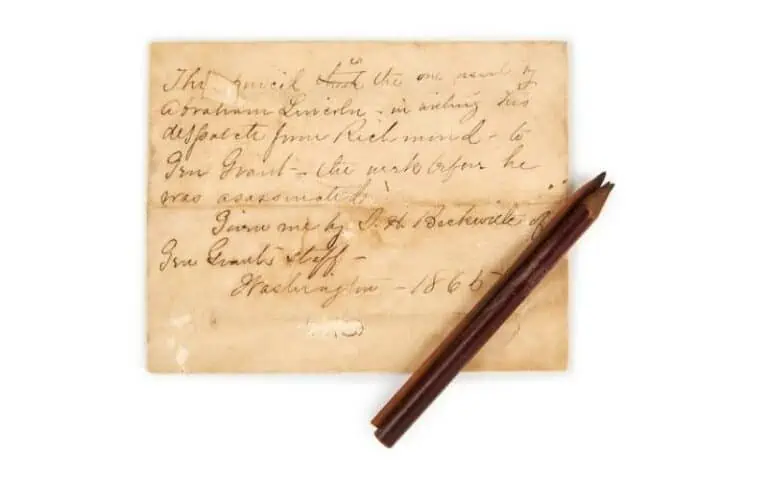 This pencil is the one used by
Abraham Lincoln - in writing his
despatch from Richmond - to
Gen Grant - the week before he
was asassinated
Given me by S. H. Beckwith of
Gen Grants staff -
Washington - 1865